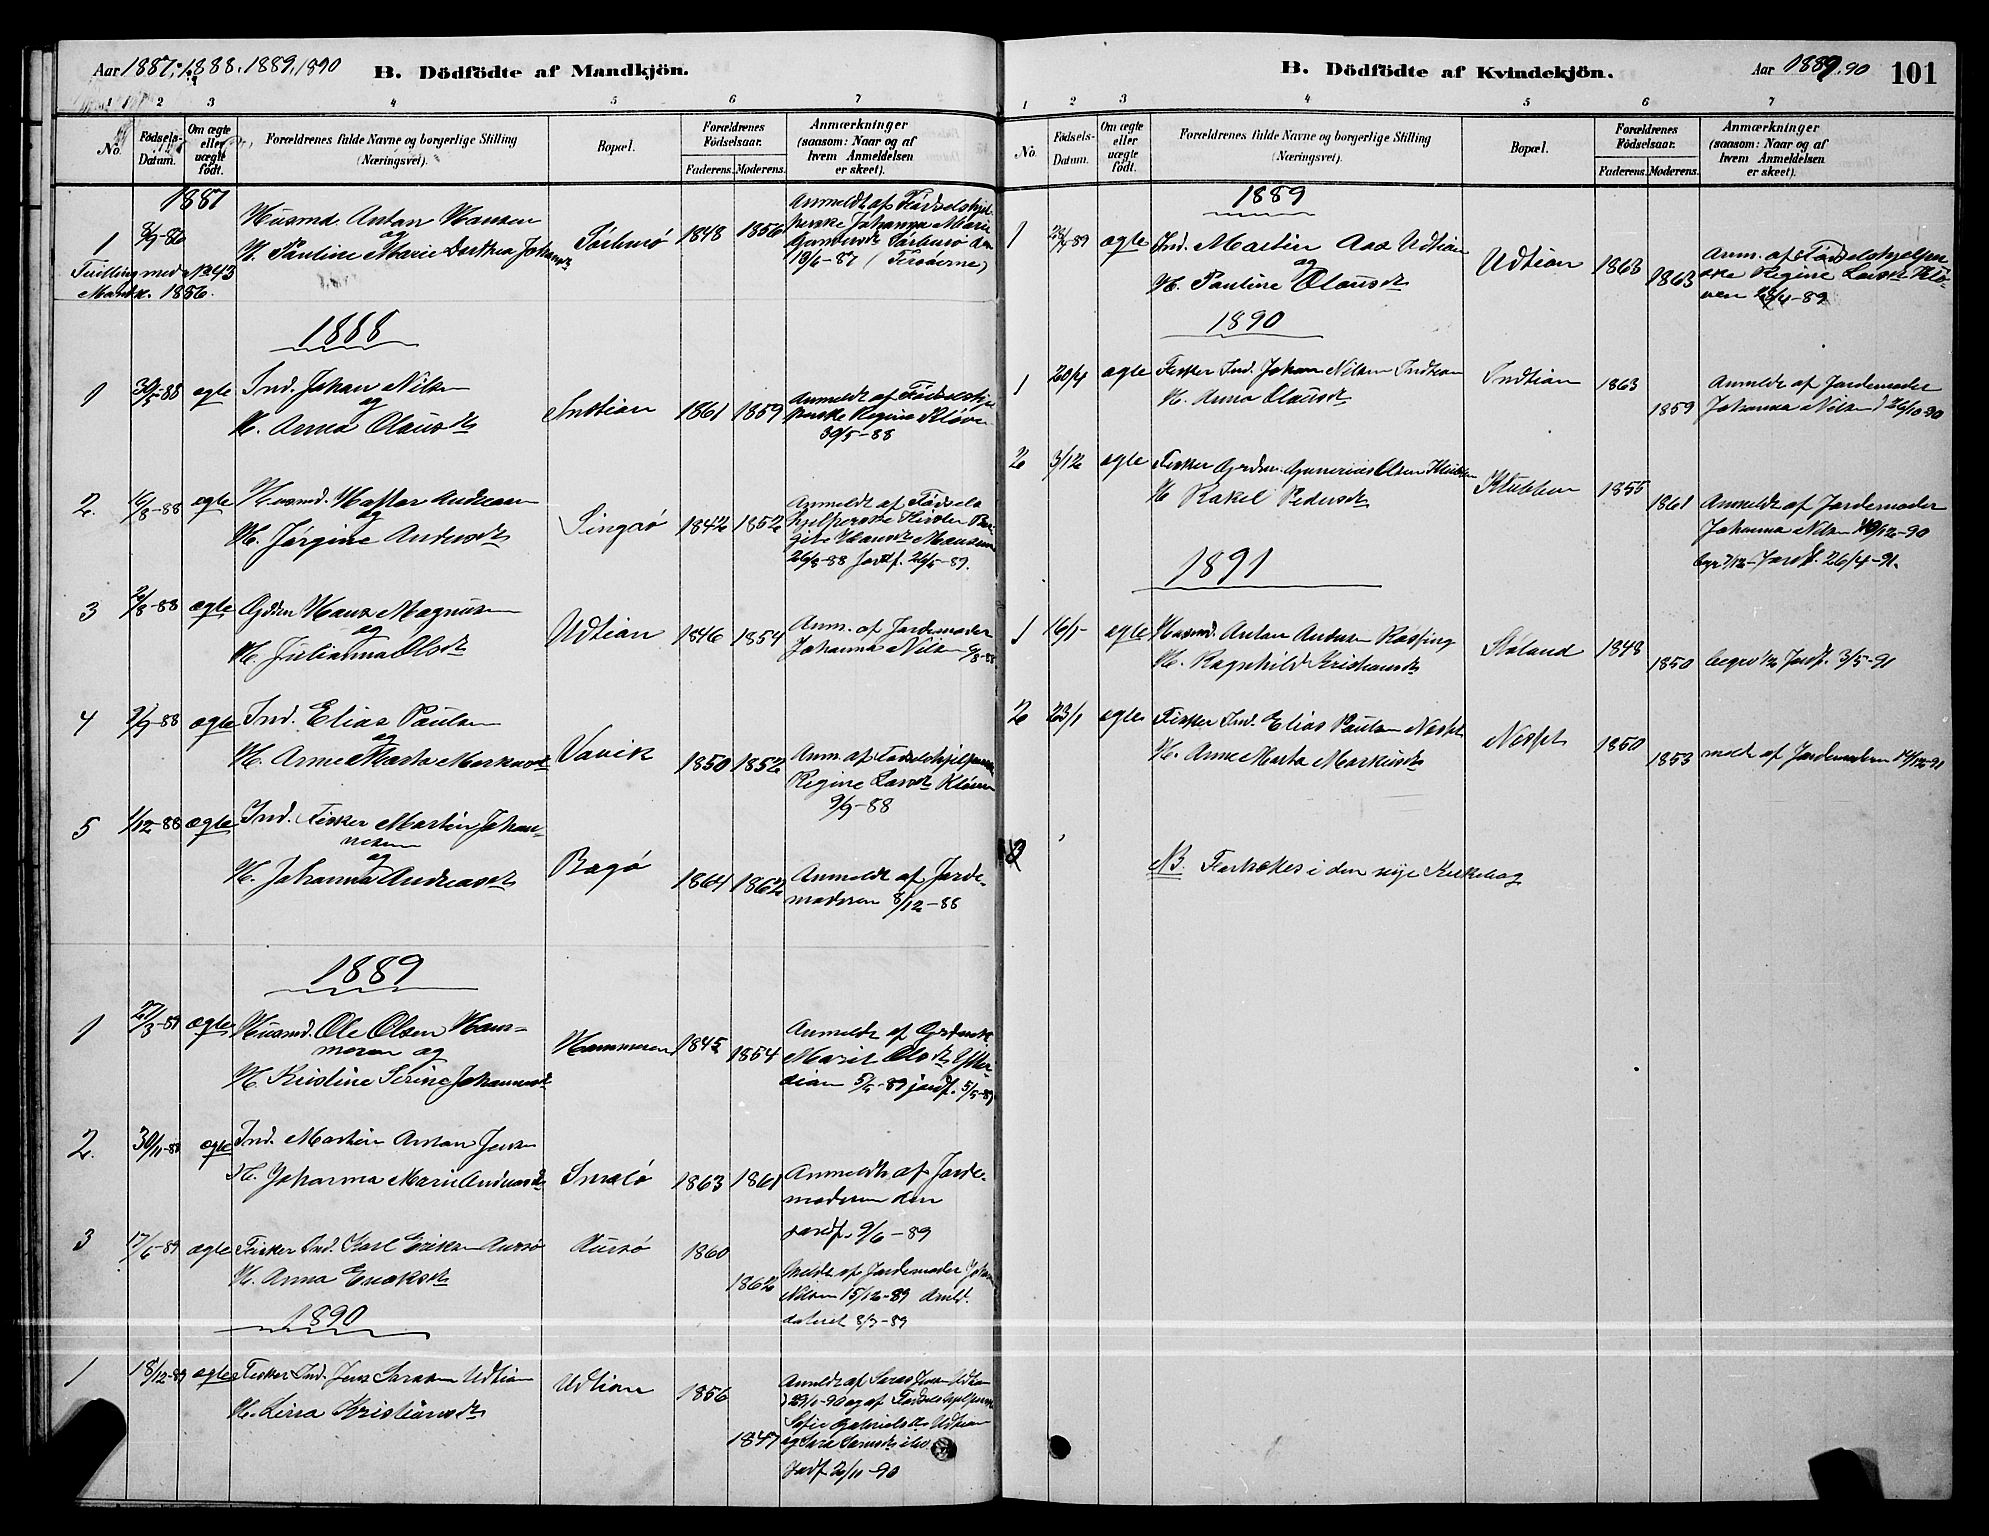 Aar 1887, 1888, 1889, 1890
B. Dödfödte af Mandkjön.
1 2 3 4 5 6 7
No.
Födsels-Datum.
Om ægte eller uægte födt.
Forældrenes fulde Navne og borgerlige Stilling (Næringsvei).
Bopæl.
Forældrenes Födselsaar.
Faderens. Moderens.
Anmærkninger (saasom: Naar og af hvem Anmeldelsen er skeet).
1887
1
Husmd. Anton Hansen
og
H. Pauline Marie Dorthea
1848 1856
Anmeldt af Födselshjel-
perske Johanna Marie
Tvilling med No 43
Mandk. 1856.
1888
1 30/5-88 ægte Ind. Johan Nilsen
og
H. Anna Olausdt
Indtian 1861 1859
Anmeldt af Födselshjel-
perske Regine Kløven
30/5-88
2. 16/8-88 ægte Husmd. Andreasen
og
H. Jørgine Andersdt
1842 1852
Anmeldt af Födsels
hjelperske
26/8-88 Jordf. 26/5-89.
3 2/8-88 ægte Gdbr. Hans Magnussen
og
H. Julianna Olsdt
Udtian 1846 1854
Anm. af Jordemoder
Johanna Nilsen 6/8-88
4 2/9-88 ægte Ind. Elias Paulsen
og
H. Anne Marta Markusdt
Vavik 1850 1852
Anm. af Födselshjelperske
Regine Larsdt Kløven
9/9-88
5 1/12-88 ægte Ind. Fisker Martin Johan-
nesen
og
H. Johanna Andreasdt
Bagø 1864 1862
Anmeldt af Jorde-
moderen 8/12-88
1889
1 27/3-89 ægte Husmd. Ole Olsen Ham-
meren og
H. Kristine Serine Johannesdt
Hammeren 1845 1854
Anmeldt af
Marit Olsdt Ytter-
dian 5/5-89 jordf. 5/5-89
2. 30/11-88 ægte Ind. Martin Anton Jensen
H. Johanna Marie Andreasdt
Smalø 1863 1861
Anmeldt af Jorde-
moderen den
jordf. 9/6-89
3 17/6-89 ægte Fisker Ind. Karl Eriksen Aursø
H. Anna
Aursø 1860
1862
Meldt af Jordemoder Johanna
Nilsen 15/12-89
dateret 8/7-89
1890
1 18/12-89 ægte Fisker Ind. Jens Udtian
H. Kristiansdt
Udtian 1856
1847
Anmeldt af
29/1-90 og af Födselshjelperske
Sofie Gabrielsdt Udtian
Jordf 2/11-90
B. Dödfödte af Kvindekjön.
Aar 1889. 90
101
1 2 3 4 5 6 7
No.
Födsels-Datum.
Om ægte eller uægte födt.
Forældrenes fulde Navne og borgerlige Stilling (Næringsvei).
Bopæl.
Forældrenes Födselsaar.
Faderens. Moderens.
Anmærkninger (saasom: Naar og af hvem Anmeldelsen er skeet).
1889
1 ægte Ind. Martin Aas Udtian
og
H. Pauline Olausdt
Udtian 1863 1863
Anm. af Födselshjelper-
ske Regine Larsdt Klø-
ven
1890
1 20/4 ægte Fisker Ind. Johan Nilsen Indtian
H. Anna Olausdt
Indtian 1863
1859
Anmeldt af Jordemoder
Johanna Nilsen 26/10-90
2 3/12 ægte Fisker Grdm. Gunerius Olsen Klubben
H. Rakel Pedersdt
Klubben 1855
1861
Anmeldt af Jordemoder
Johanna Nilsen 10/12-90
Jordf. 26/4-91.
1891
1 16/1 ægte Husmd. Anton Andersen
H. Ragnhild Kristiansdt
1848
1850
Jordf. 3/5-91
2 23/1 ægte Fisker Ind. Elias Paulsen Nesset
H. Anne Marta Markusdt
Nesset 1850
1853
meldt af Jordemoderen
3
NB. Fortsættes i den nye Kirkebog